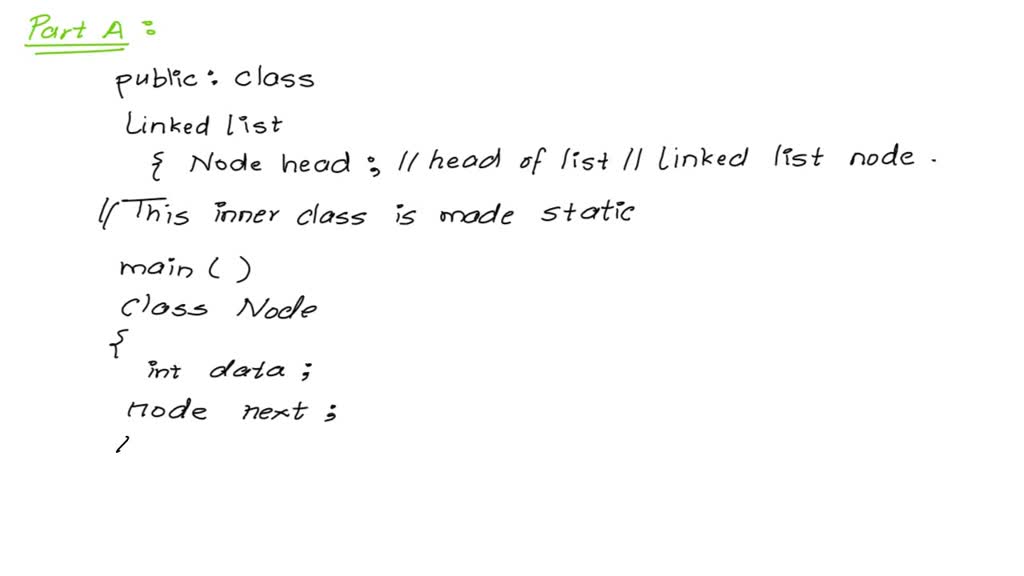 Part A :
public : class
Linked list
{ Node head ; // head of list // linked list node .
// This inner class is made static
main ( )
class Node
{
int data ;
node next ;